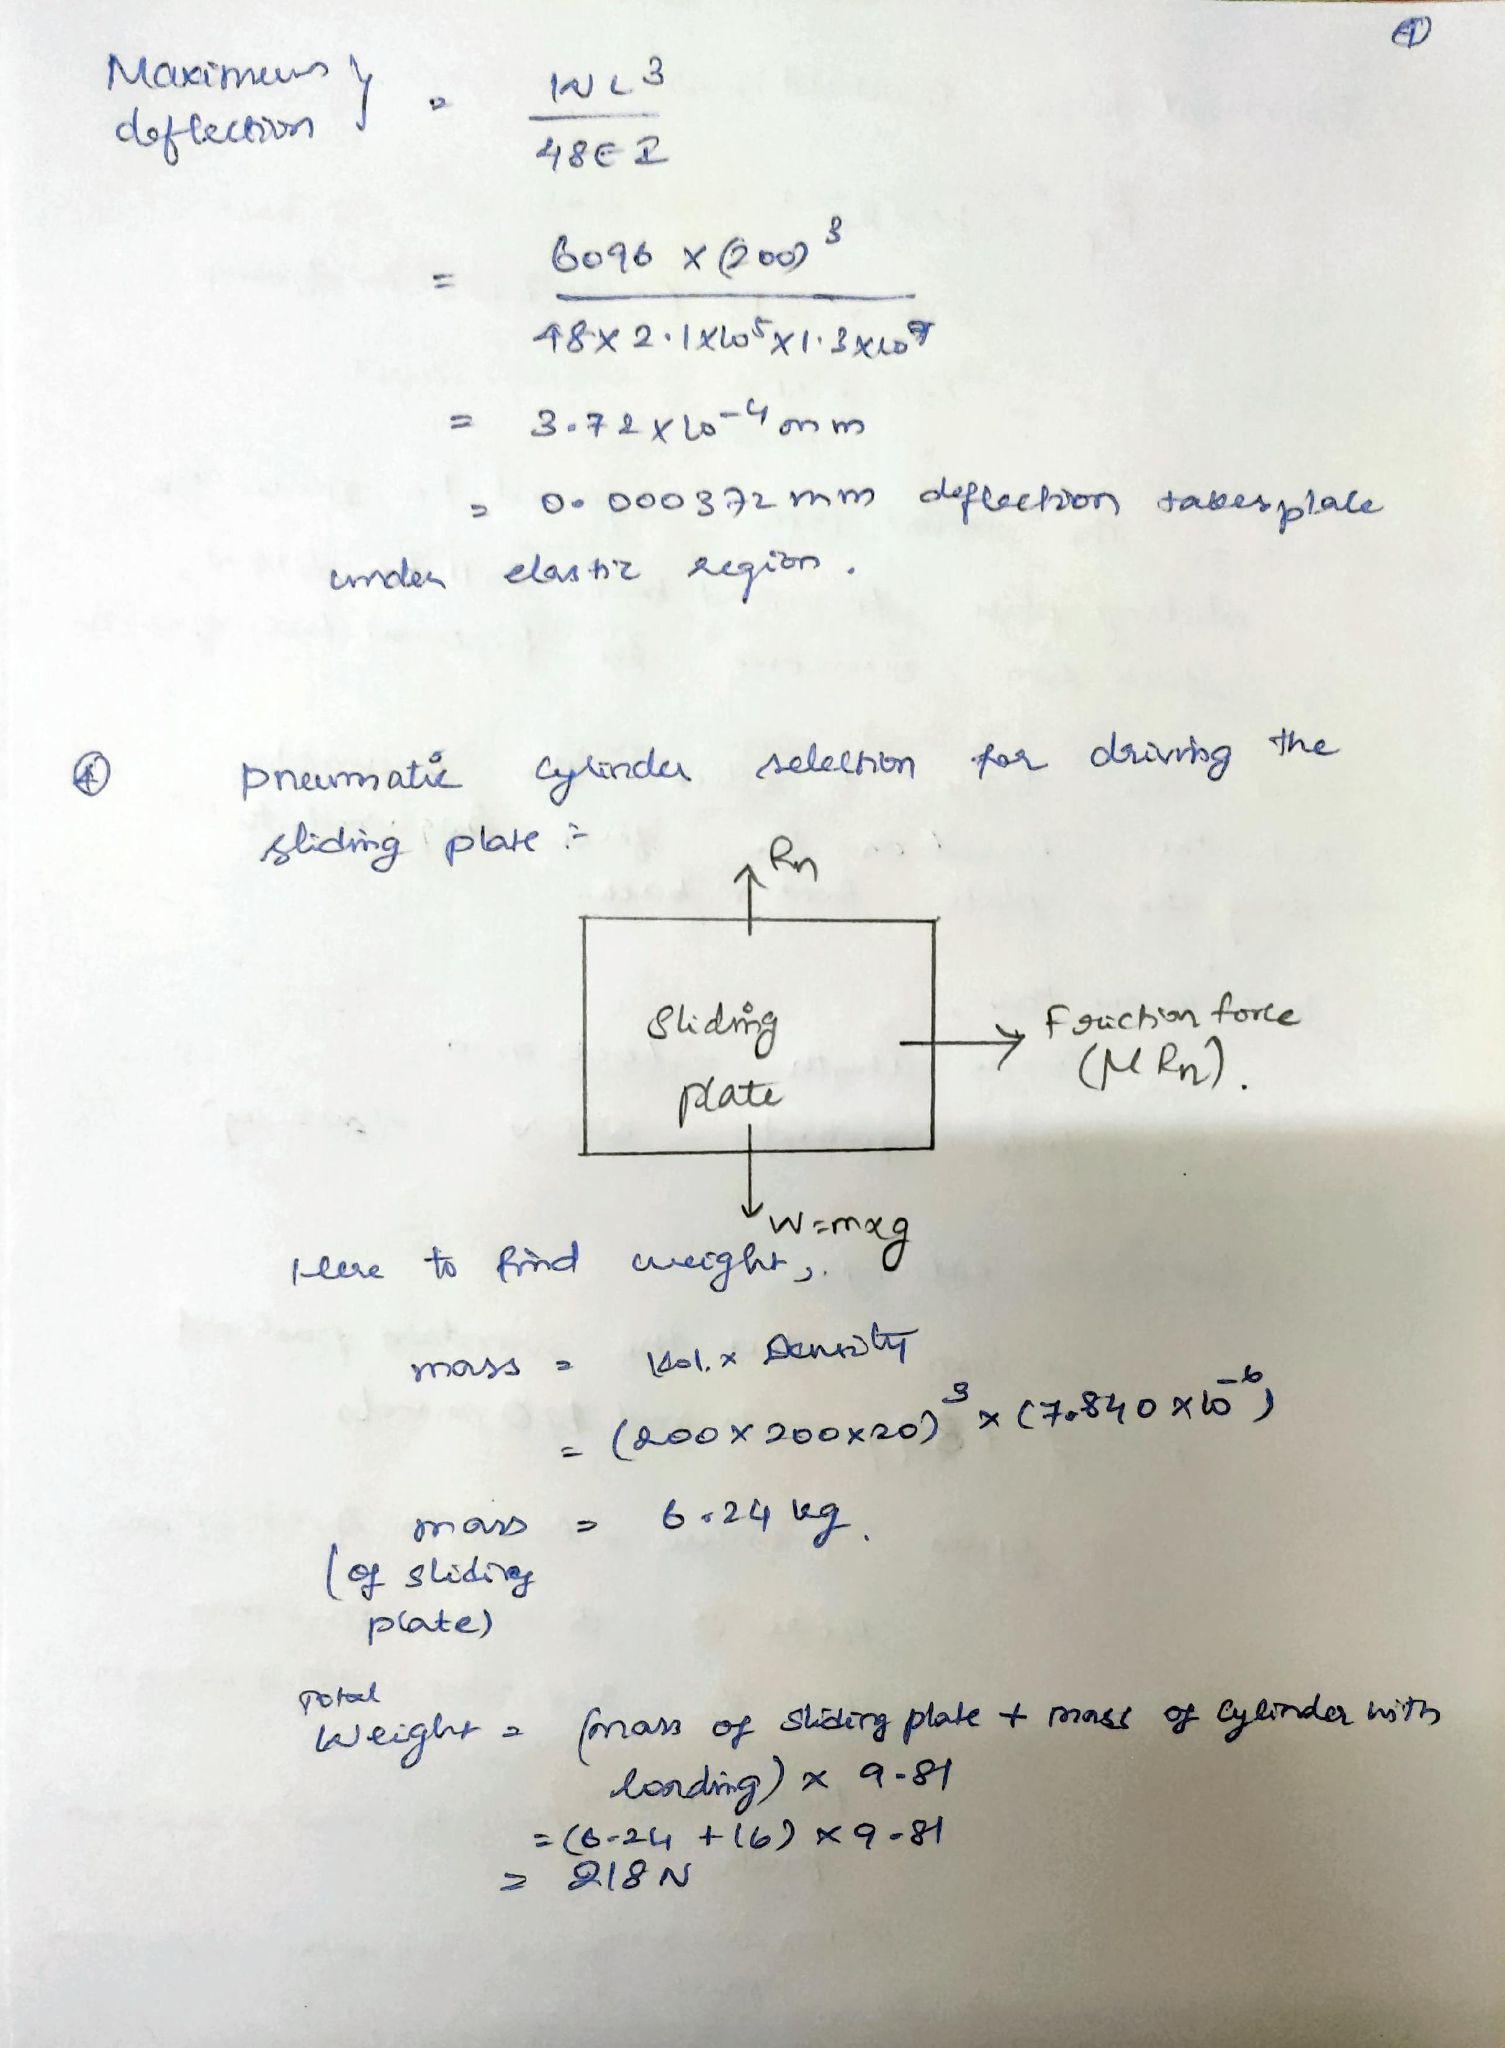 Maximum } = WL³
deflection 48EI
= 6096 x (200)³
48 x 2.1 x 10⁵ x 1.3 x 10⁷
= 3.72 x 10⁻⁴ mm
= 0.000372 mm deflection takes place
under elastic region.
④ pneumatic cylinder selection for driving the
sliding plate :-
Rn
Sliding
plate
Friction force
(μ Rn).
W=mxg
Here to find weight,
mass = Vol. x Density
= (200 x 200 x 20)³ x (7.840 x 10⁻⁶)
mass = 6.24 kg.
(of sliding
plate)
Total
Weight = (mass of sliding plate + mass of cylinder with
loading) x 9.81
= (6.24 + 16) x 9.81
= 218 N